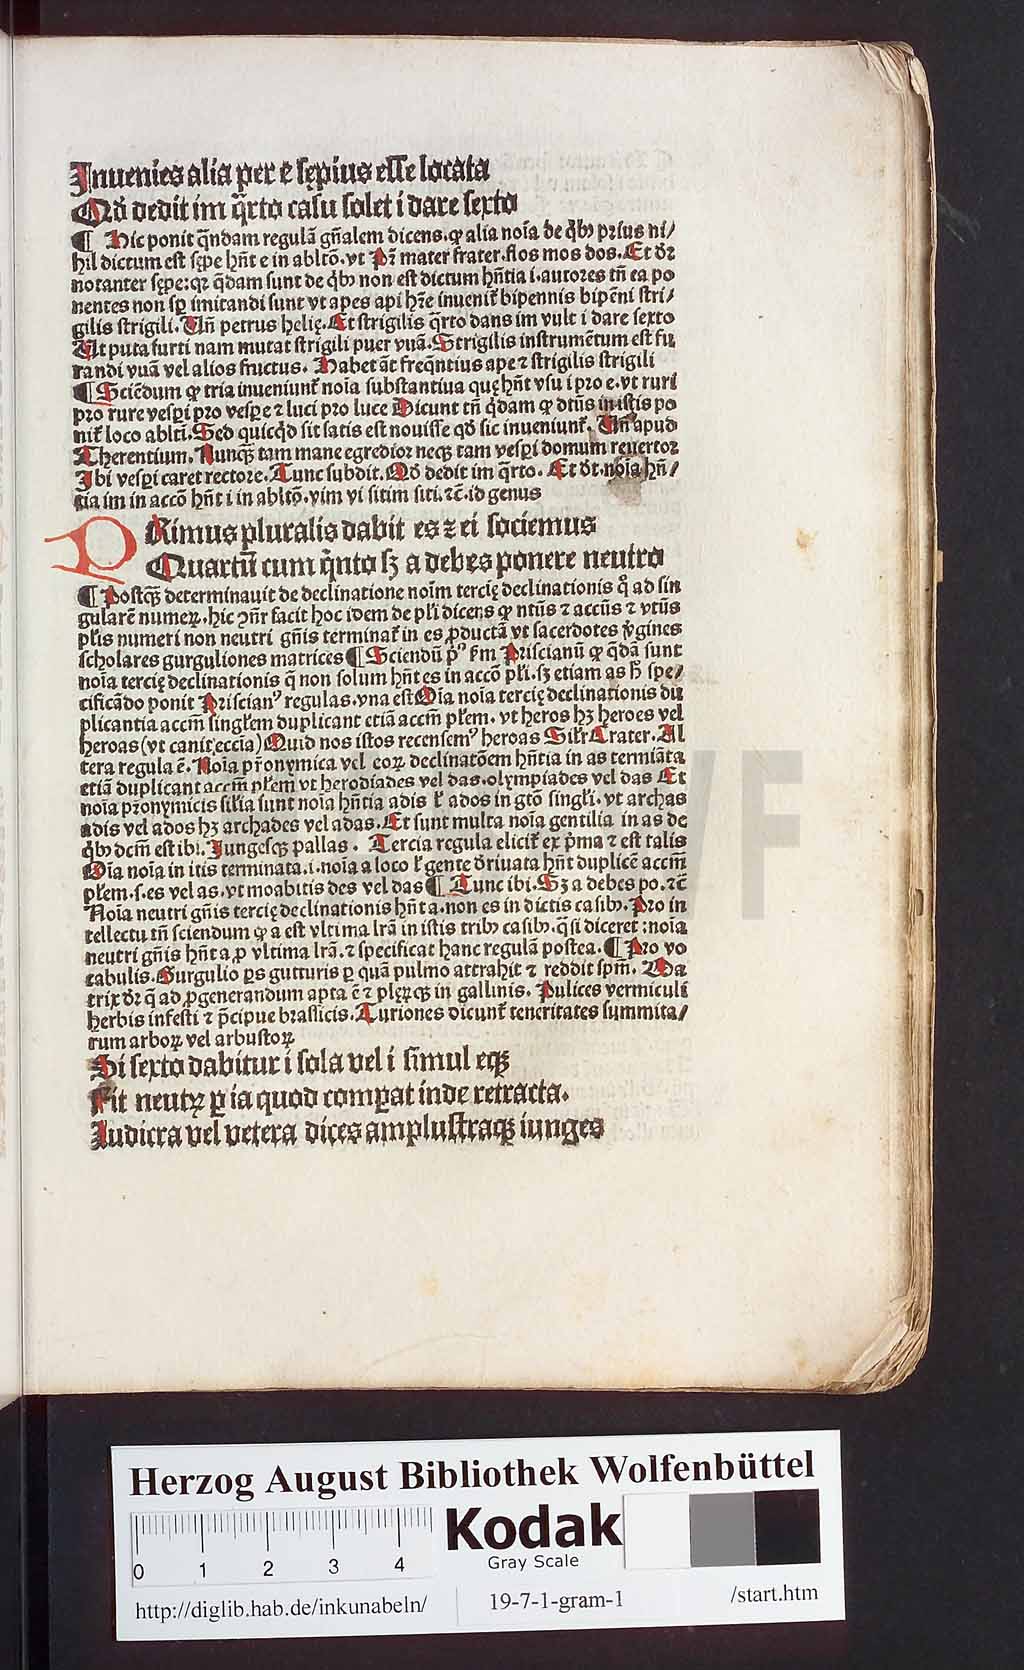 Inuenies alia per ē sępius esse locata
Qď dedit im q̄rto casu solet i dare sexto
¶ Hic ponit q̄ndam regulā gn̄alem dicens. ꝙ alia noīa de qͥbꝫ prius ni/
hil dictum est sępe hn̄t e in abltō. vt Pr̄ mater frater. flos mos dos. Et dr̄
notanter sępe: qꝛ q̄dam sunt de qͥbꝫ non est dictum hn̄tia i. autores tn̄ ea po
nentes non sꝑ imitandi sunt vt apes api hr̄e inuenit᷑ bipennis bipēni stri/
gilis strigili. Un̄ petrus helię. Et strigilis q̄rto dans im vult i dare sexto
Ut puta furti nam mutat strigili puer vuā. Strigilis instrumētum est fu
randi vuā vel alios fructus. Habet āt freq̄ntius ape ⁊ strigilis strigili
¶ Sciēdum ꝙ tria inueniunt᷑ noīa substantiua quę hn̄t vsu i pro e. vt ruri
pro rure vesꝑi pro vesꝑe ⁊ luci pro luce Dicunt tn̄ qͥdam ꝙ dtūs in istis po
nit᷑ loco ablti. Sed quicqͥd sit satis est nouisse qď sic inueniunt᷑. Un̄ apud
Therentium. Nunqꝫ tam mane egredior neqꝫ tam vesꝑi domum reuertor
Ibi vesꝑi caret rectore. Tunc subdit. Qď dedit im q̄rto. Et dt. noīa hn̄/
tia im in accō hn̄t i in abltō. vim vi sitim siti. ⁊c̄. id genus
PRimus pluralis dabit es ⁊ ei sociemus
Quartū cum qͥnto sꝫ a debes ponere neutro
¶ Postqꝫ determinauit de declinatione noīm tercię declinationis qͦ ad sin
gularē numeꝝ. hic ꝯn̄r facit hoc idem de pl̄i dicens ꝙ ntūs ⁊ accūs ⁊ vtūs
pl̄is numeri non neutri gn̄is terminat᷑ in es ꝓductā vt sacerdotes v̓gines
scholares gurguliones matrices ¶ Sciendū pͦ ẜm Priscianū ꝙ q̄dā sunt
noīa tercię declinationis q̄ non solum hn̄t es in accō pl̄i. sꝫ etiam as ħ spe/
cificādo ponit Priscianꝰ regulas. vna est Oīa noīa tercię declinationis du
plicantia accm̄ singl̓em duplicant etiā accm̄ pl̓em. vt heros hꝫ heroes vel
heroas (vt canit eccīa) Quid nos istos recensemꝰ heroas Sil̓r Crater. Al
tera regula ē. Noīa pr̄onymica vel eoꝝ declinatōem hn̄tia in as termiāta
etiā duplicant accm̄ pl̓em vt herodiades vel das. olympiades vel das Et
noīa pr̄onymicis sil̓ia sunt noīa hn̄tia adis ł ados in gtō singl̓i. vt archas
adis vel ados hꝫ archades vel adas. Et sunt multa noīa gentilia in as de
qͥbꝫ dcm̄ est ibi. Iungesqꝫ pallas. Tercia regula elicit᷑ ex pͥma ⁊ est talis
Oīa noīa in itis terminata. i. noīa a loco ł gente d̓riuata hn̄t duplicē accm̄
pl̓em. s. es vel as. vt moabitis des vel das ¶ Tunc ibi. Sꝫ a debes po. ⁊c̄
Noīa neutri gn̄is tercię declinationis hn̄t a. non es in dictis casibꝫ. Pro in
tellectu tn̄ sciendum ꝙ a est vltima lr̄a in istis tribꝫ casibꝫ. q̄si diceret: noīa
neutri gn̄is hn̄t a ꝓ vltima lr̄a. ⁊ specificat hanc regulā postea. ¶ Pro vo
cabulis. Gurgulio ꝑs gutturis ꝑ quā pulmo attrahit ⁊ reddit spm̄. Ma
trix dr̄ q̄ ad ꝓgenerandum apta ē ⁊ plęꝝqꝫ in gallinis. Pulices vermiculi
herbis infesti ⁊ p̄cipue brassicis. Turiones dicunt᷑ teneritates summita/
rum arboꝝ vel arbustoꝝ
Si sexto dabitur i sola vel i simul eqꝫ
Fit neutꝝ ꝑ ia quod comꝑat inde retracta.
Ludicra vel vetera dices amplustraqꝫ iunges
Herzog August Bibliothek Wolfenbüttel
0 1 2 3 4
Kodak
Gray Scale
http://diglib.hab.de/inkunabeln/
19-7-1-gram-1
/start.htm